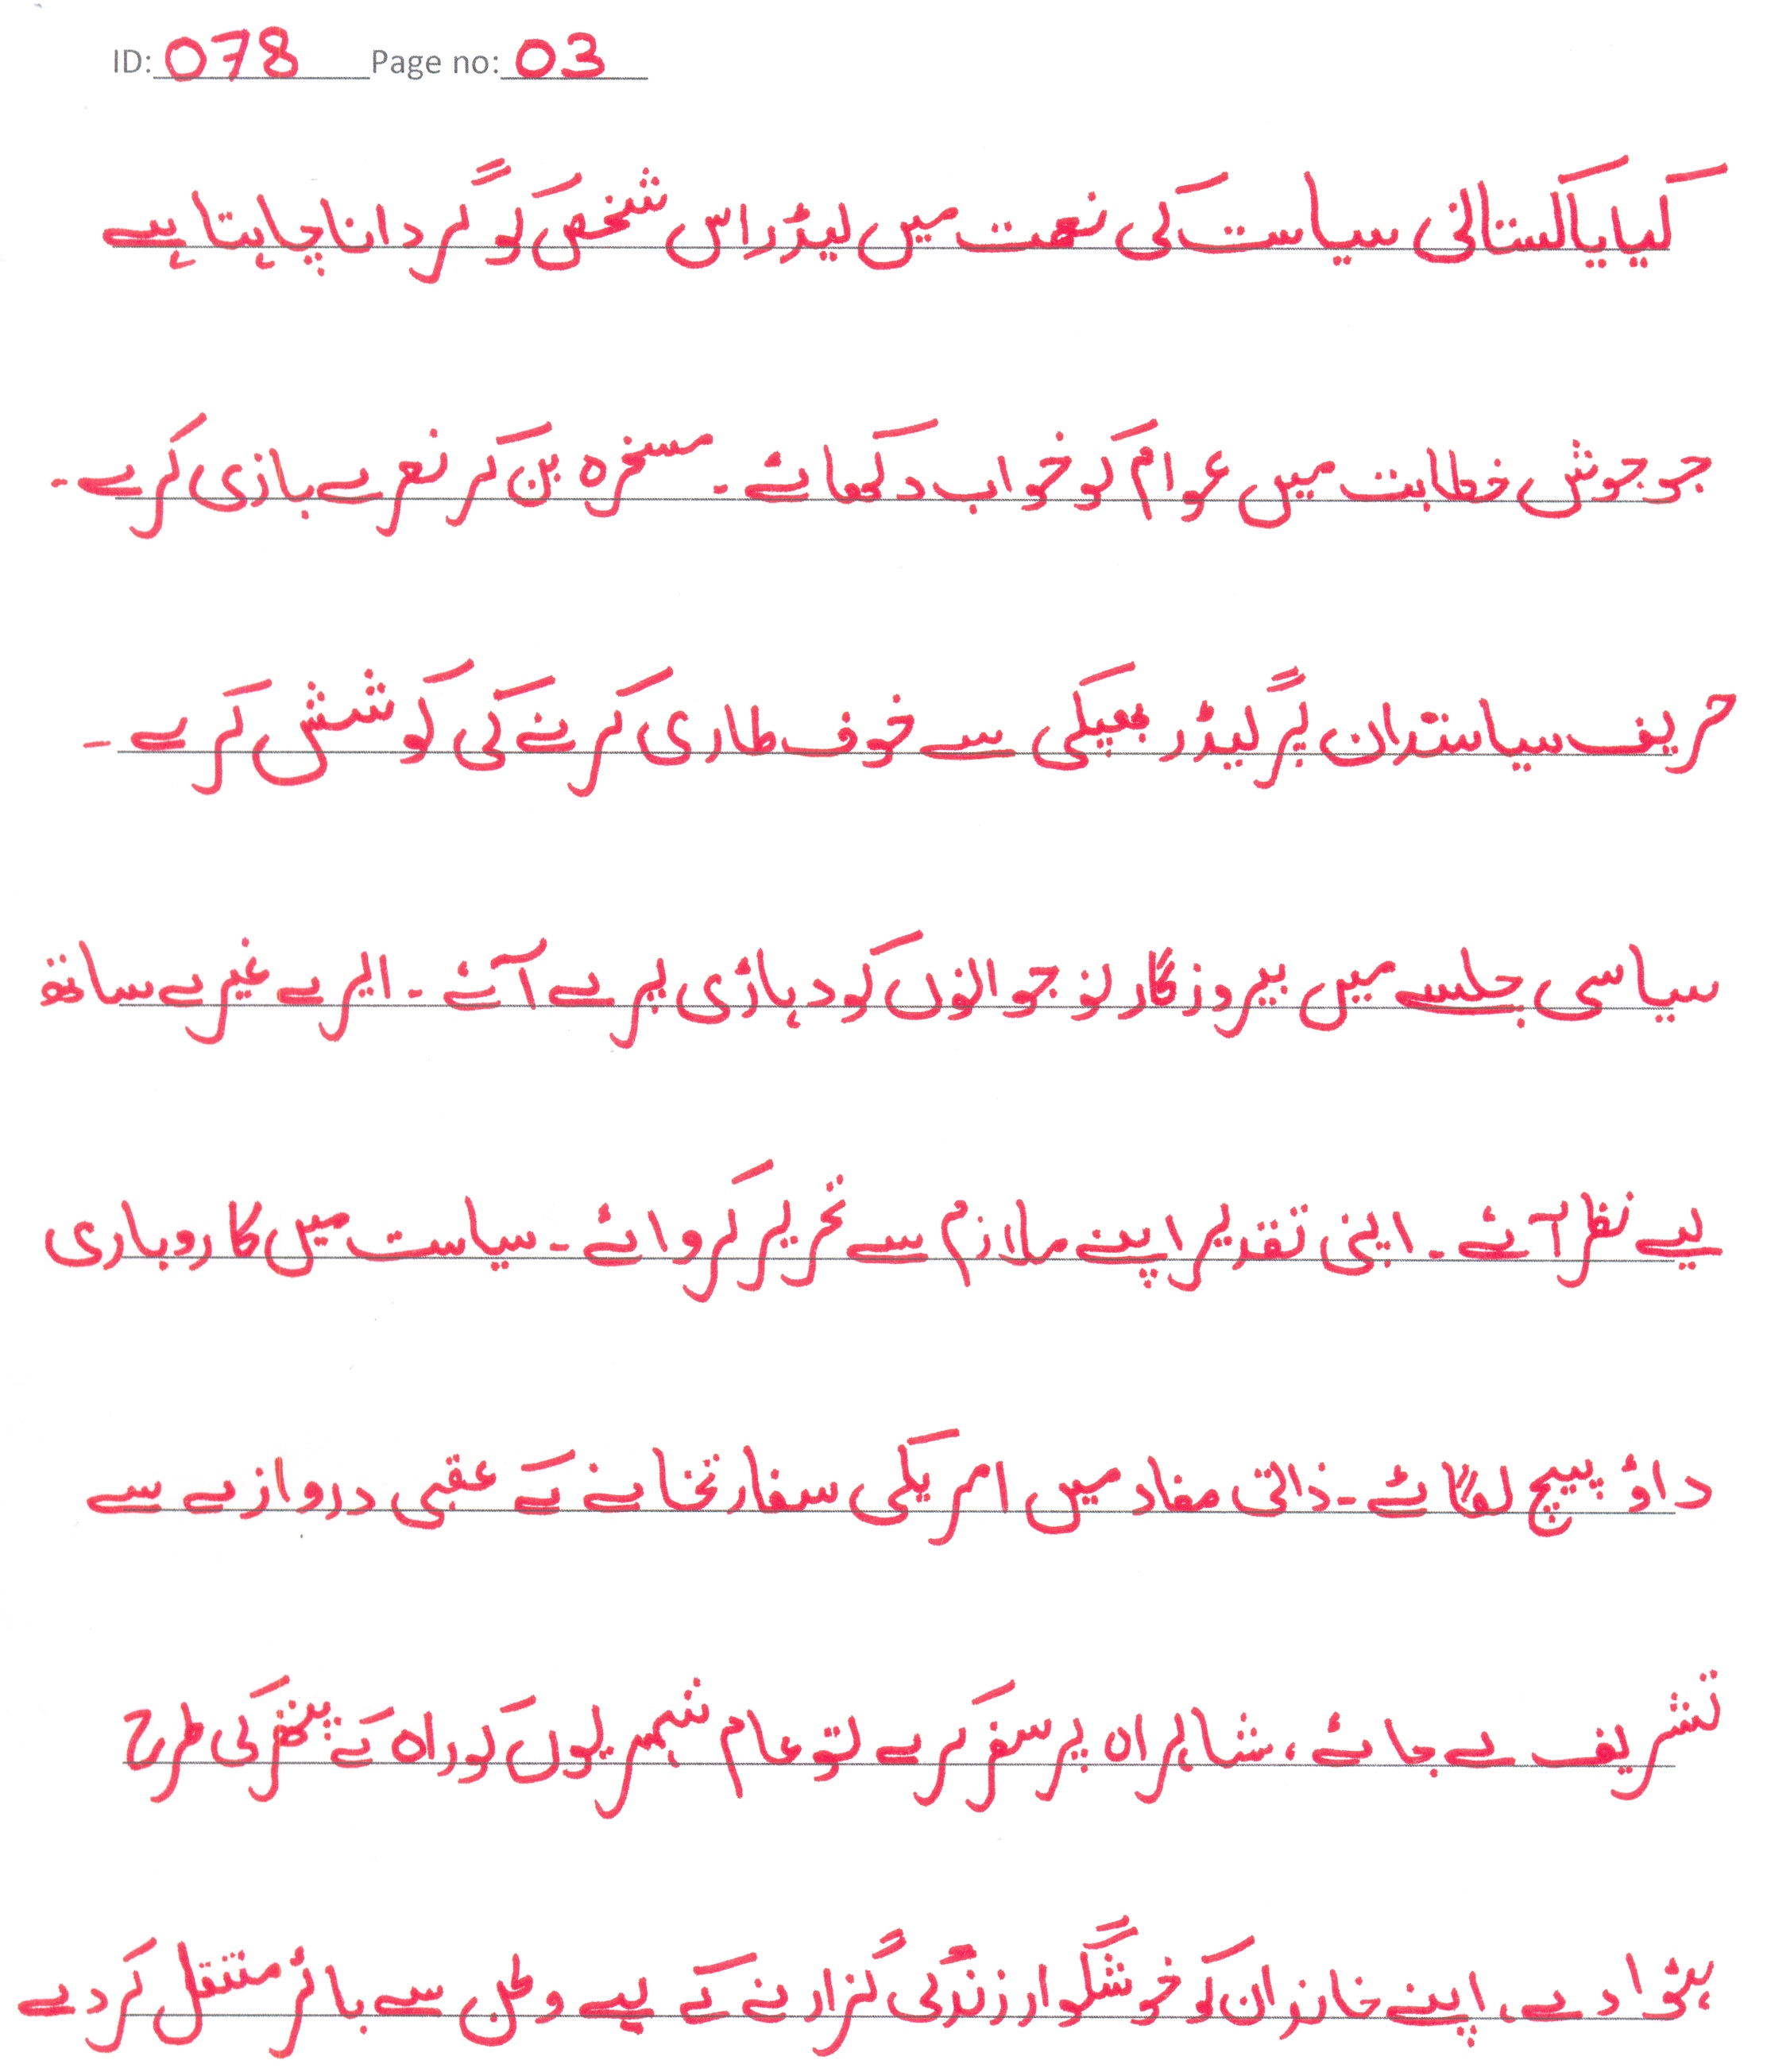 ID: 078 Page no: 03
کیا پاکستانی سیاست کی نعت میں لیڈر اس شخص کو گردانا چاہتا ہے
جو جوش خطابت میں عوام کو خواب دکھائے ۔ مسخرہ بن کر نعرے بازی کرے ۔
حریف سیاستدان پر گیڈر بھبکی سے خوف طاری کرنے کی کوشش کرے ۔
سیاسی جلسے میں بیروزگار نوجوانوں کو دہاڑی پر لے آئے ۔ ایرے غیرے ساتھ
لیے نظر آئے ۔ اپنی تقدیر اپنے ملازم سے تحریر کروائے ۔ سیاست میں کاروباری
داؤ پیچ لگائے ۔ ذاتی مفاد میں امریکی سفارتخانے کے عقبی دروازے سے
تشریف لے جائے ، شاہراہ پر سفر کرے تو عام شہریوں کو راہ کے پتھر کی طرح
ہٹوا دے ، اپنے خاندان کو خوشگوار زندگی گزارنے کے لیے وطن سے باہر منتقل کر دے